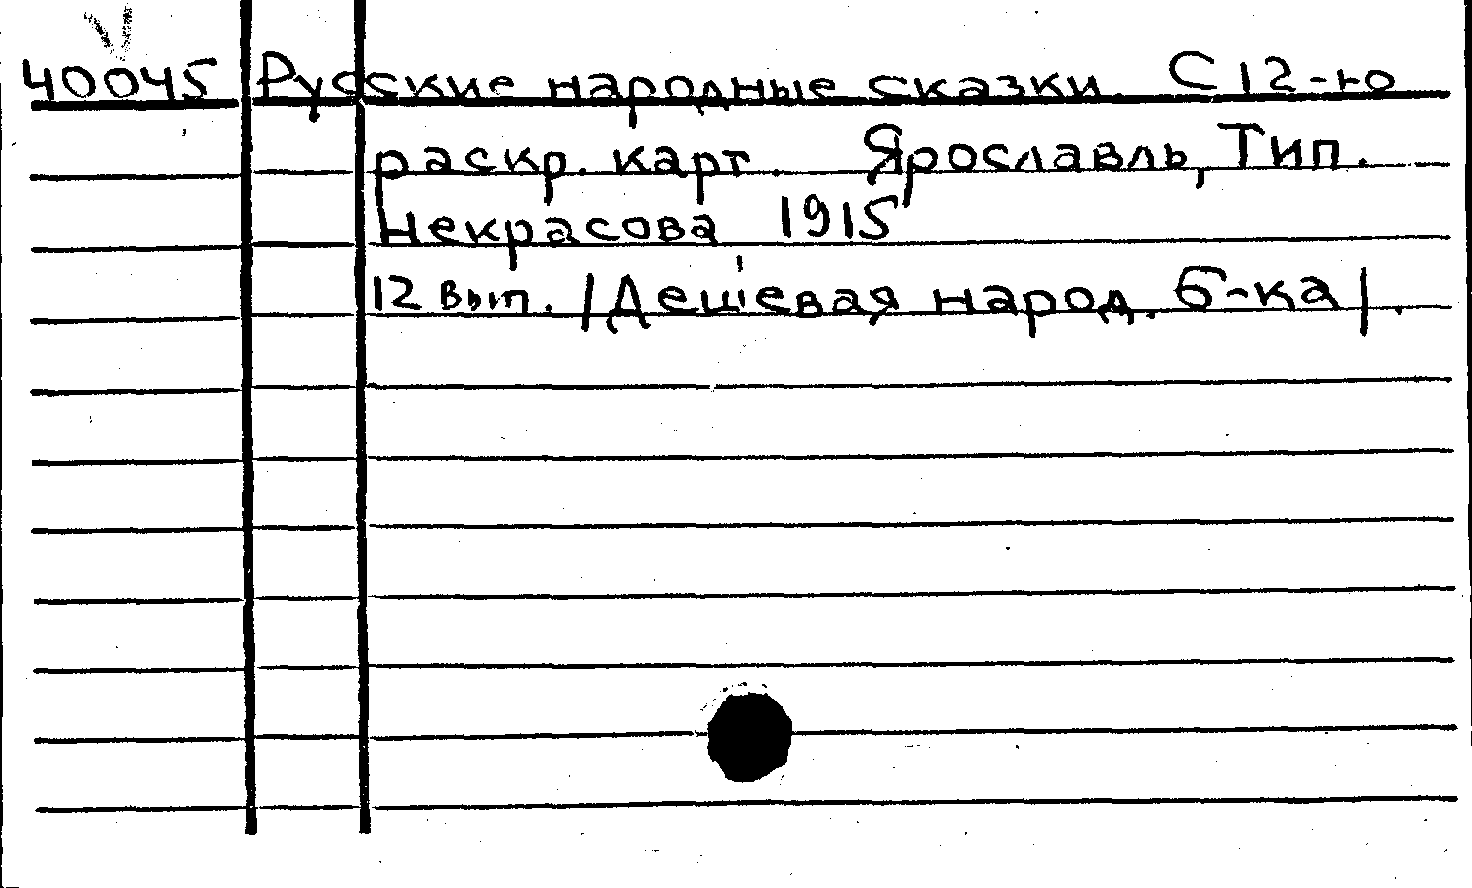 40045 Русские народные сказки. С 12-ю
раскр. карт. Ярославль, Тип.
Некрасова 1915
12 вып. /Дешевая народ. б-ка/.